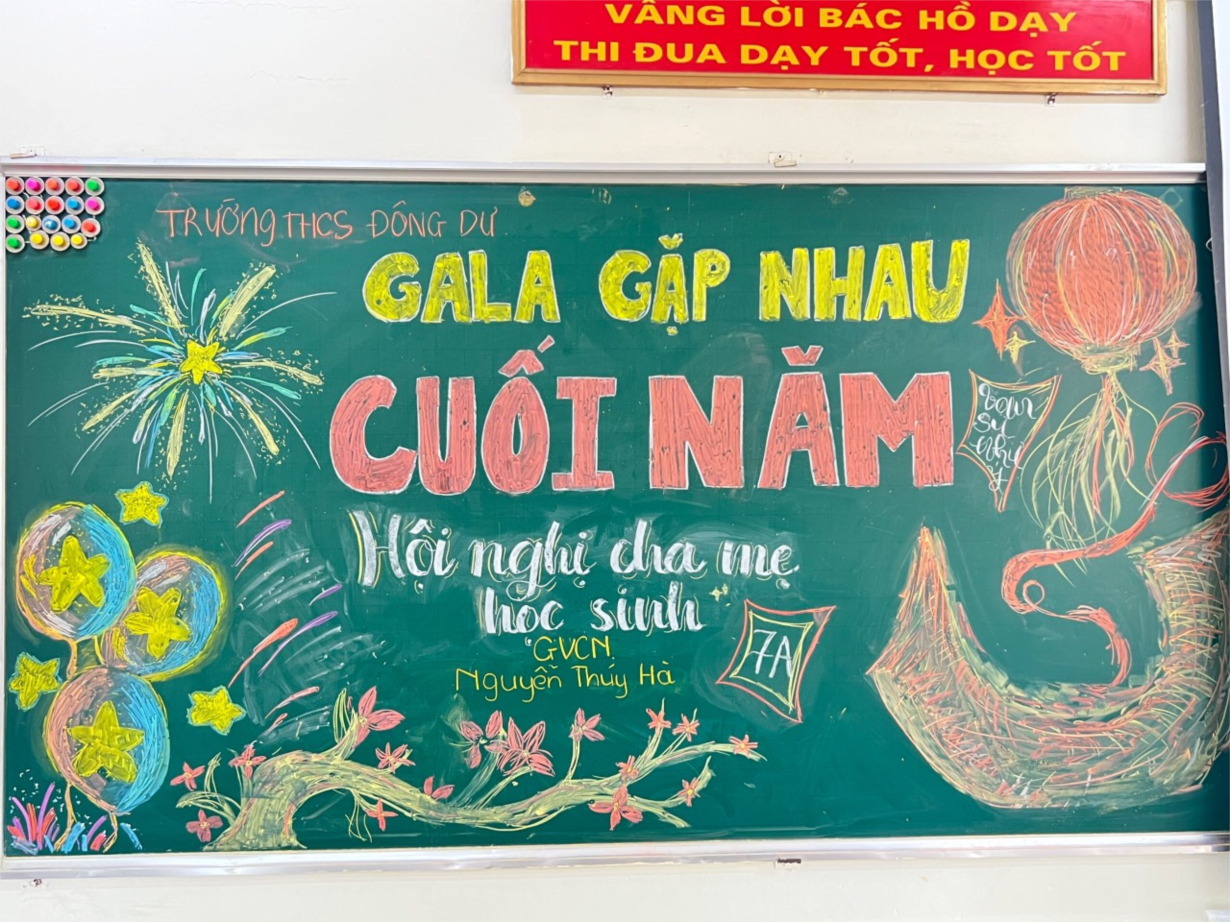 VÂNG LỜI BÁC HỒ DẠY
THI ĐUA DẠY TỐT, HỌC TỐT
TRƯỜNG THCS ĐÔNG DƯ
GALA GẶP NHAU
CUỐI NĂM
vạn
sự
như
ý
Hội nghị cha mẹ
học sinh
GVCN
Nguyễn Thúy Hà
7A